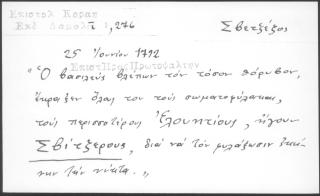 Επιστολ Κοραη
Εκδ Δαμαλ Ι, 276
Σβετζέζος
25 Ιουνίου 1792
Επιστΐρος Πρωτοψάλτην
"Ὁ βασιλεύς βλέπων τόν τόσον θόρυβον,
έκραξεν ὅλας του τούς σωματοφύλακας,
τούς περισσοτέρους Ἐλουητίους, ἤγουν
Σβίτζερους, διά νά τόν φυλάξωσιν ἐκεί-
νην τήν νύκτα."